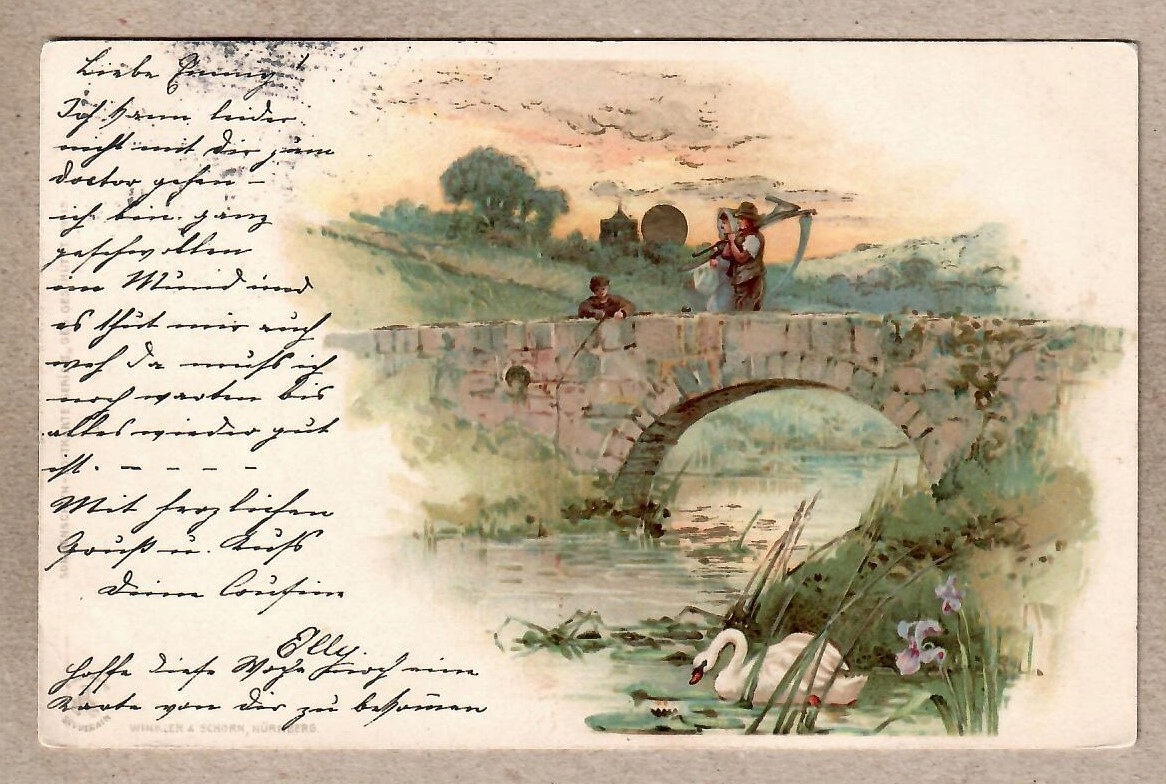 Liebe Emmy!
Ich kann leider
nicht mit Dir zum
Doctor gehen –
ich bin ganz
geschwollen
im Mund und
es thut mir auch
weh da muß ich
noch warten bis
alles wieder gut
ist. – – – – –
Mit herzlichen
Gruß u. Kuß
Deine Cousine
Elly.
hoffe diese Woche noch eine
Karte von dir zu bekom̅en
WINKLER & SCHORN, NÜRNBERG.